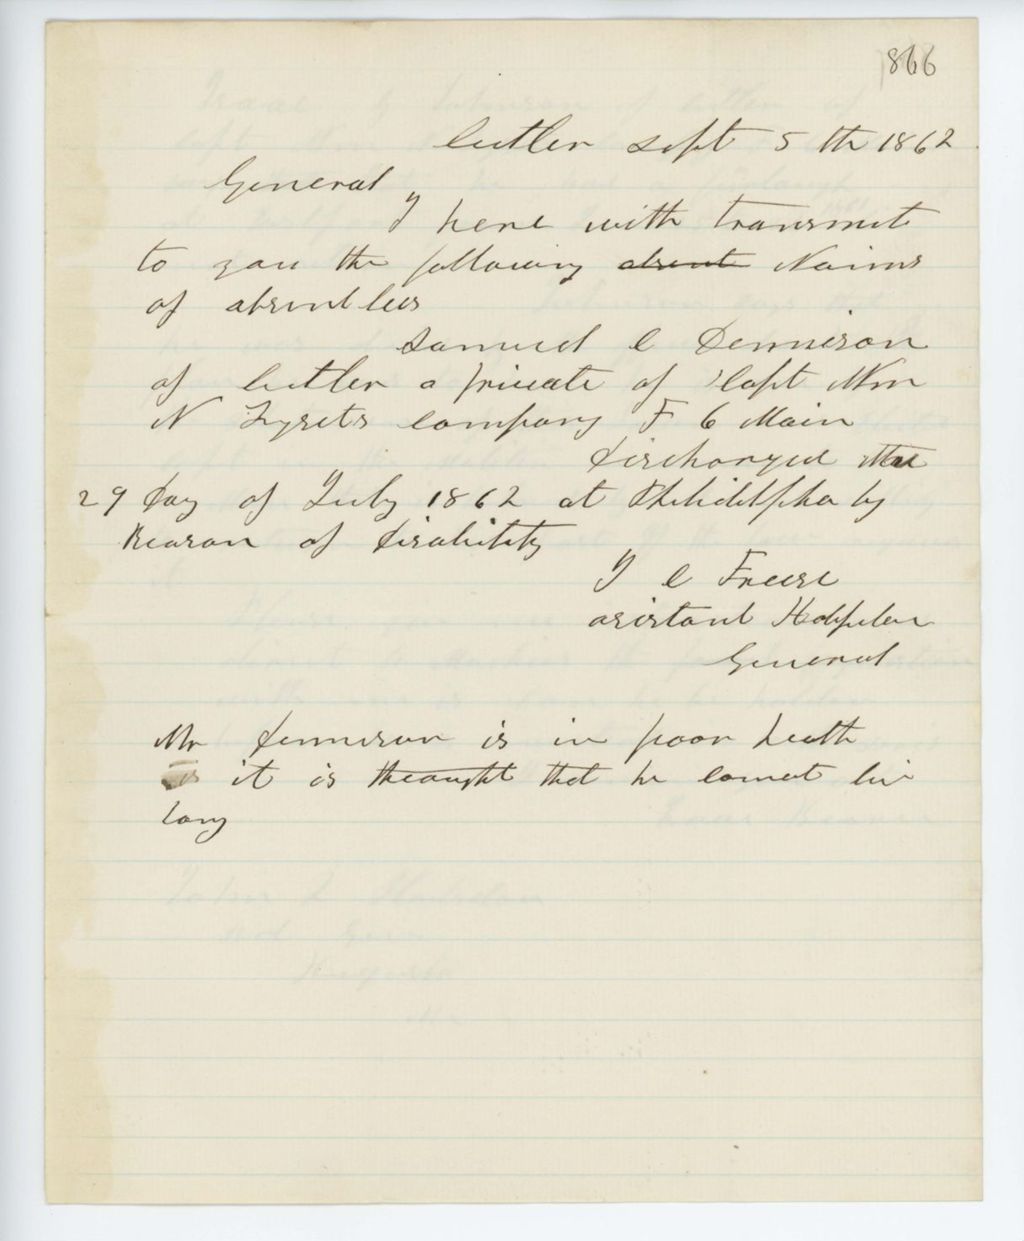 866
Cutler Sept 5 th 1862
General
I here with transmit
to you the following absent Naims
of absentees
Samuel C Dennison
of Cutler a private of Capt Wm
N company F 6 Main
discharged the
29 Day of July 1862 at Philidelpha by
Reason of disability
I C
asistant
General
Mr Dennison is in poor health
it is thought that he cannot liv
long